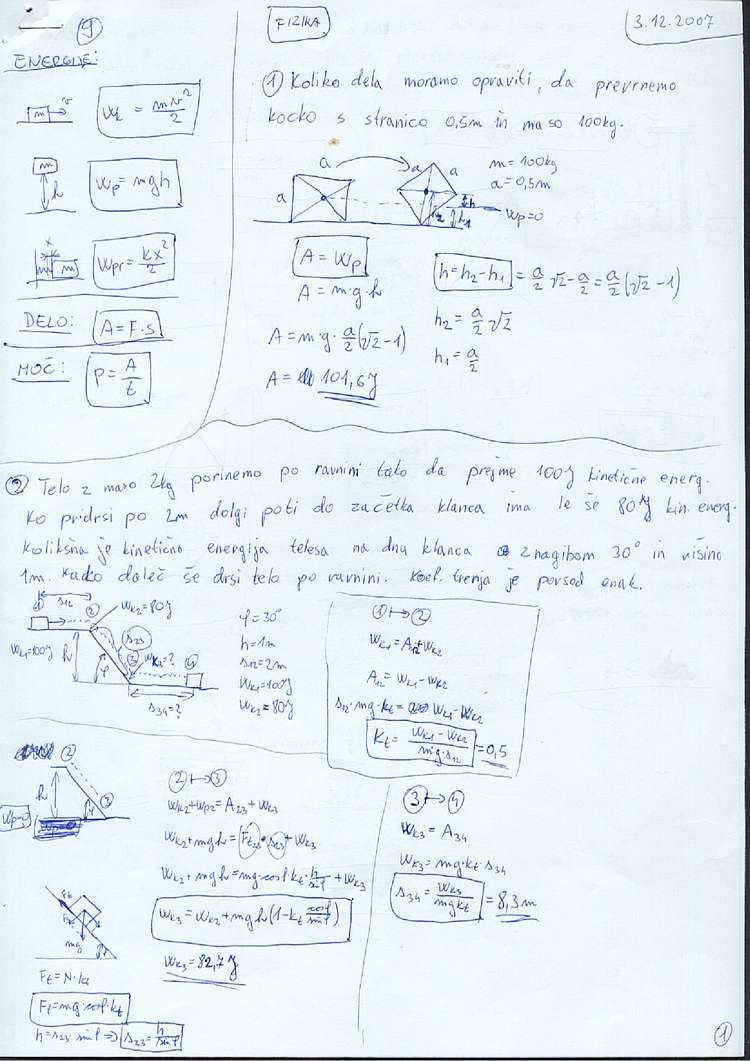 9
FIZIKA
3.12.2007
ENERGIJE:
m v
Wk = mv²/2
m
h
Wp = mgh
x
m
Wpr = kx²/2
DELO: A = F·s
MOČ: P = A/t
① Koliko dela moramo opraviti, da prevrnemo
kocko s stranico 0,5m in maso 100kg.
a a a
a
m = 100kg
a = 0,5m
h
h2 h1
Wp=0
A = Wp
A = m·g·h
A = m·g·a/2(√2-1)
A = 101,6J
h = h2-h1 = a/2 √2 - a/2 = a/2(√2-1)
h2 = a/2 √2
h1 = a/2
② Telo z maso 2kg porinemo po ravnini tako da prejme 100J kinetične energ.
Ko pridrsi po 2m dolgi poti do začetka klanca ima le še 80J kin. energ.
Kolikšna je kinetična energija telesa na dnu klanca z nagibom 30° in višino
1m. Kako daleč še drsi telo po ravnini. Koef. trenja je povsod enak.
① s12 ② Wk2=80J
s23
Wk1=100J h φ ③ Wk3=? ④
s34=?
φ=30°
h=1m
s12=2m
Wk1=100J
Wk2=80J
①→②
Wk1=A12+Wk2
A12=Wk1-Wk2
s12·mg·kt=Wk1-Wk2
kt = (Wk1-Wk2)/(m·g·s12) = 0,5
②
h
φ ③
Wp=0 Wp=0
②→③
Wk2+Wp2=A23+Wk3
Wk2+mgh=Ft23·s23+Wk3
Wk2+mgh=mg·cosφ·kt·h/sinφ+Wk3
Wk3=Wk2+mgh(1-kt cosφ/sinφ)
Wk3=82,7J
③→④
Wk3=A34
Wk3=mg·kt·s34
s34=Wk3/mgkt=8,3m
Ft
mg
φ
Ft=N·kt
Ft=mg·cosφ·kt
h=s23·sinφ ⇒ s23=h/sinφ
1